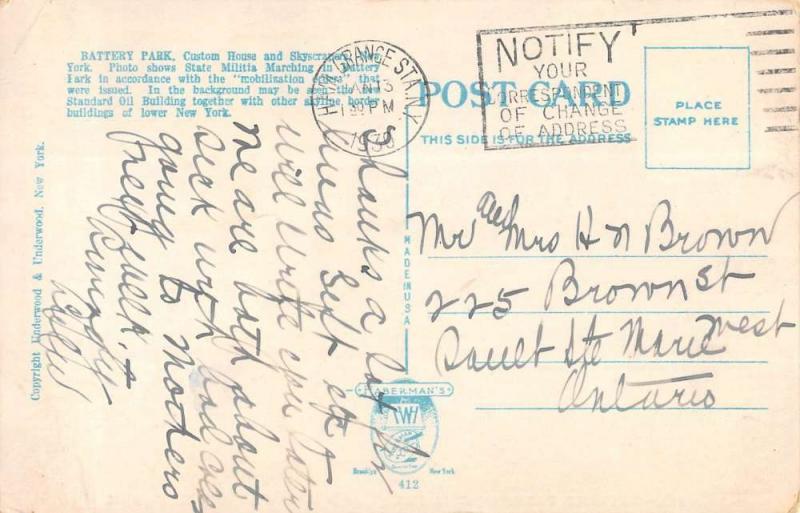 BATTERY PARK, Custom House and Skyscrapers, New
York. Photo shows State Militia Marching in Battery
Park in accordance with the "mobilization orders" that
were issued. In the background may be seen the
Standard Oil Building together with other skyline border
buildings of lower New York.
GRANGE STA. N.Y.
1 30 PM
1938
NOTIFY
YOUR
CORRESPONDENT
OF CHANGE
OF ADDRESS
POST CARD
THIS SIDE IS FOR THE ADDRESS
PLACE
STAMP HERE
Thanks a lot for
Xmas Gift of
will write you later
We are both about
sick with bad colds
going to Mothers
next week. +
Mr and Mrs H N Brown
225 Brown St
Sault Ste Marie West
Ontario
MADE IN USA
Copyright Underwood & Underwood, New York.
HABERMAN'S
Brooklyn New York
412